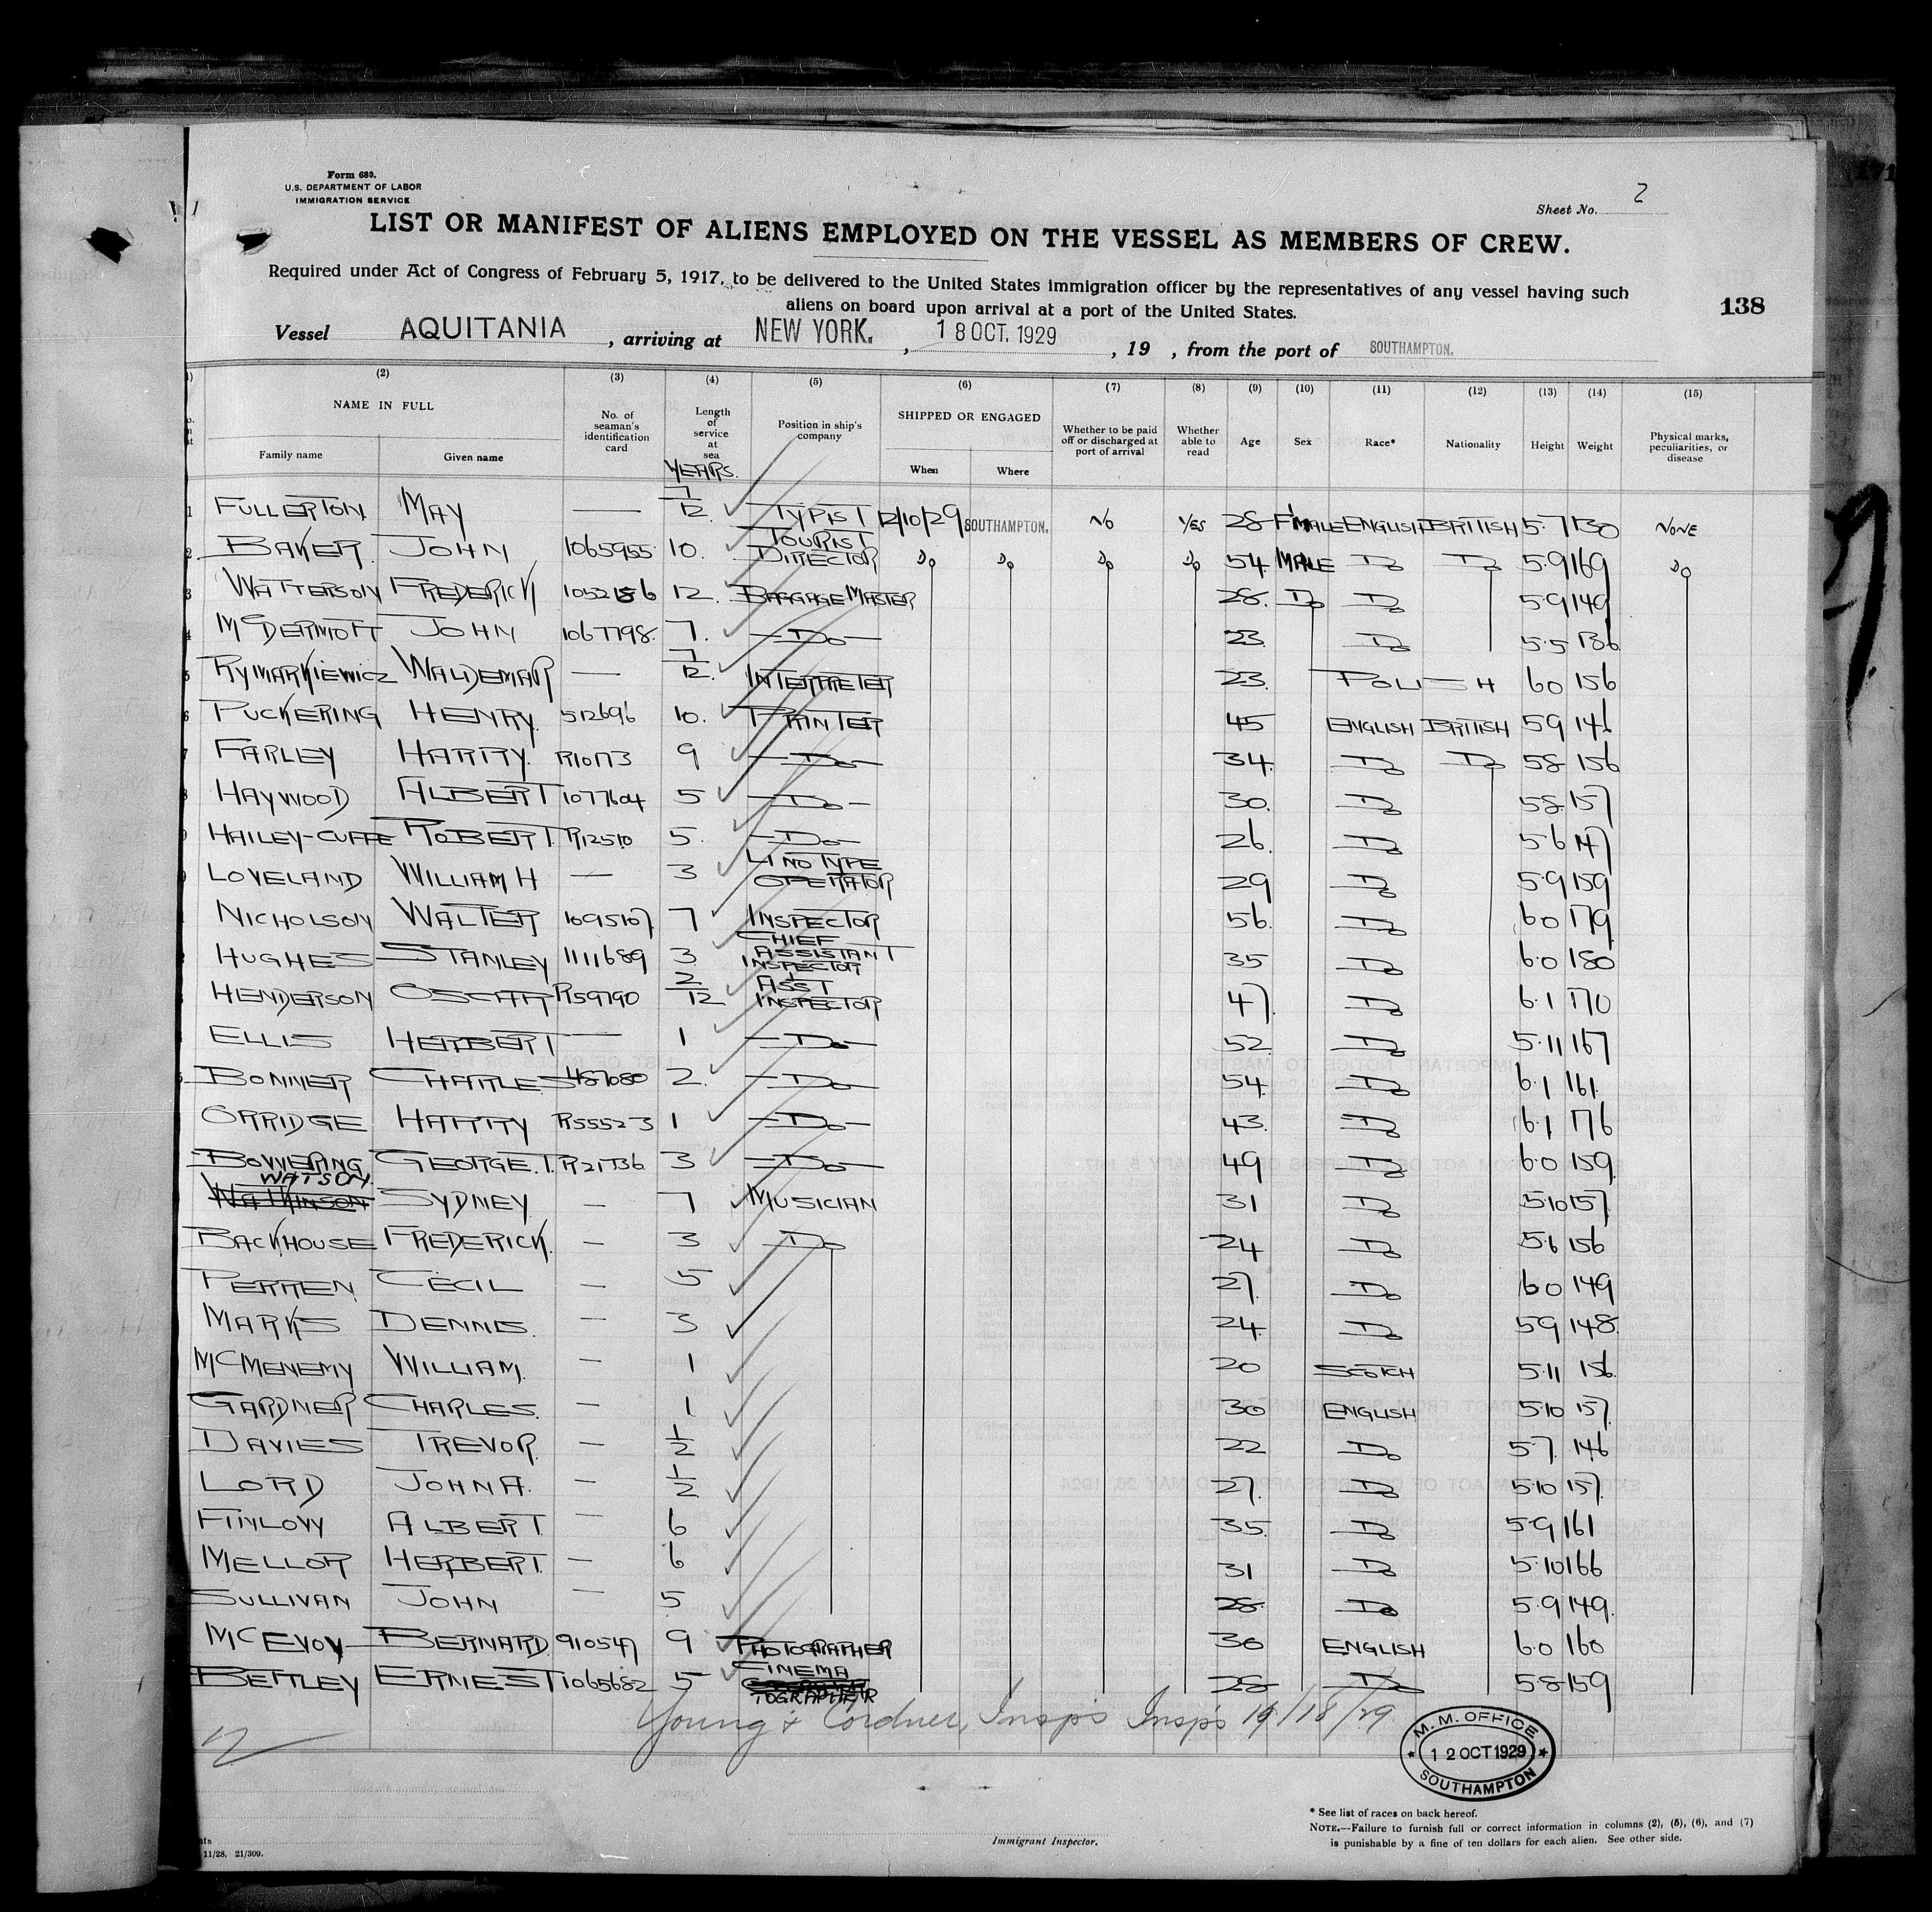 Form 680.
U.S. DEPARTMENT OF LABOR
IMMIGRATION SERVICE
Sheet No. 2
LIST OR MANIFEST OF ALIENS EMPLOYED ON THE VESSEL AS MEMBERS OF CREW.
Required under Act of Congress of February 5, 1917, to be delivered to the United States immigration officer by the representatives of any vessel having such
aliens on board upon arrival at a port of the United States.
138
Vessel AQUITANIA, arriving at NEW YORK., 18 OCT. 1929, 19 , from the port of SOUTHAMPTON.
(2) (3) (4) (5) (6) (7) (8) (9) (10) (11) (12) (13) (14) (15)
NAME IN FULL
Family name Given name
No. of seaman's identification card
Length of service at sea
YEARS.
Position in ship's company
SHIPPED OR ENGAGED
When Where
Whether to be paid off or discharged at port of arrival
Whether able to read
Age Sex Race* Nationality Height Weight
Physical marks, peculiarities, or disease
1 FULLERTON MAY — 7/12 TYPIST 12/10/29 SOUTHAMPTON. NO YES 28 F'MALE ENGLISH BRITISH 5.7 130 NONE
2 BAKER JOHN 1065955 10. TOURIST DIRECTOR Do Do Do Do 54 MALE Do Do 5.9 169 Do
3 WATTERSON FREDERICK 1052156 12. BAGGAGE MASTER 28. Do Do 5.9 149
4 McDERMOTT JOHN 1067798. 7. —Do— 23 Do 5.5 136
5 RYMARKIEWICZ WALDEMAR — 7/12. INTERPRETER 23. POLISH 6.0 156
6 PUCKERING HENRY. 512696 10. PRINTER 45 ENGLISH BRITISH 5.9 146
7 FARLEY HARRY. R10173 9 —Do— 34. Do Do 5.8 156
8 HAYWOOD ALBERT 1077604 5 —Do— 30. Do 5.8 157
9 HAILEY-CUFFE ROBERT. R12510 5. —Do— 26. Do 5.6 147
LOVELAND WILLIAM H — 3 LINOTYPE OPERATOR 29 Do 5.9 159
NICHOLSON WALTER 1095107 7 INSPECTOR 56. Do 6.0 179
HUGHES STANLEY 1111689 3 CHIEF ASSISTANT INSPECTOR 35 Do 6.0 180
HENDERSON OSCAR R59790 2/12 ASST INSPECTOR 47. Do 6.1 170
ELLIS HERBERT — 1 —Do— 52. Do 5.11 167
BONNER CHARLES 487080 2. —Do— 54. Do 6.1 161.
ORRIDGE HARRY R55523 1 —Do— 43. Do 6.1 176
BOWERING GEORGE.T. R21736 3 —Do— 49 Do 6.0 159
WATSON.
WATKINSON SYDNEY. — 7 MUSICIAN 31 Do 5.10 157.
BACKHOUSE FREDERICK. — 3 Do 24 Do 5.6 156
PERREN CECIL — 5 27. Do 6.0 149
MARKS DENNIS. — 3 24. Do 5.9 148.
McMENEMY WILLIAM. — 1 20 SCOTCH 5.11 156
GARDNER CHARLES. — 1 30 ENGLISH 5.10 157.
DAVIES TREVOR. — 1/2 22 Do 5.7. 146
LORD JOHN A. — 1/2 27. Do 5.10 157.
FINLOW ALBERT. — 6 35. Do 5.9 161
MELLOR HERBERT. — 6 31 Do 5.10 166
SULLIVAN JOHN — 5 28. Do 5.9 149.
McEVOY BERNARD. 910547 9 PHOTOGRAPHER 30 ENGLISH 6.0 160
BETTLEY ERNEST 1065682 5 CINEMA TOGRAPHER 28 Do 5.8 159
Young & Cordner, Insp's Insp's 10/18/29
M. M. OFFICE
12 OCT 1929
SOUTHAMPTON
Immigrant Inspector.
* See list of races on back hereof.
NOTE.—Failure to furnish full or correct information in columns (2), (5), (6), and (7)
is punishable by a fine of ten dollars for each alien. See other side.
11/28. 21/309.